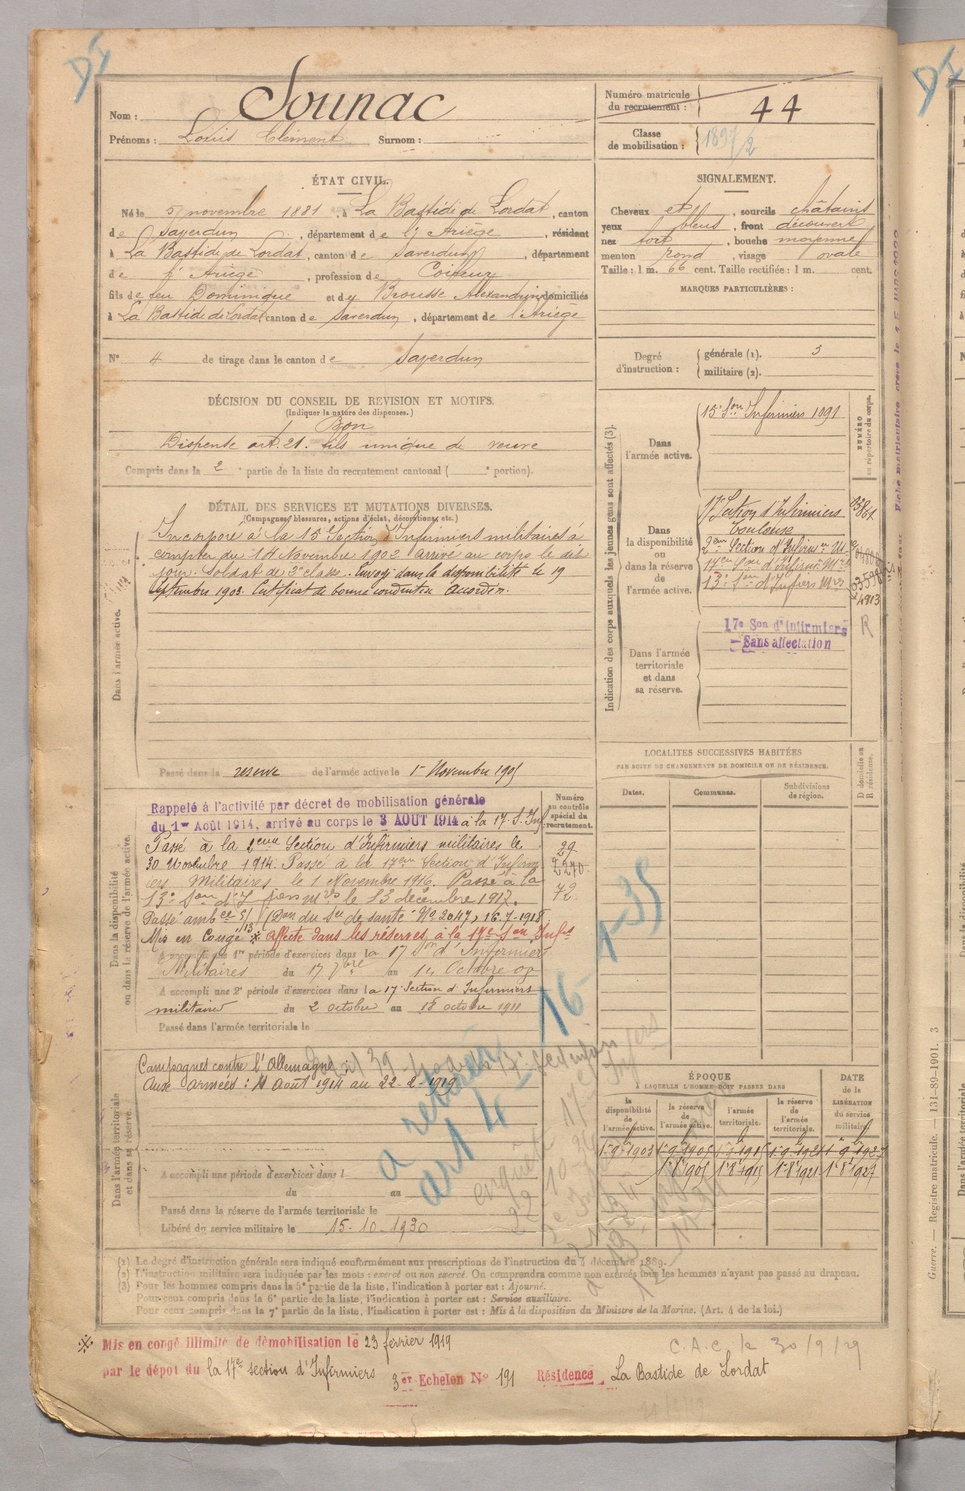 DI
Nom : Sounac
Prénoms : Louis Clément Surnom :
Numéro matricule
du recrutement : 44
Classe
de mobilisation : 1897/2
ÉTAT CIVIL.
Né le 5 novembre 1881, à La Bastide de Lordat, canton
de Saverdun, département de l'Ariège, résident
à La Bastide de Lordat, canton de Saverdun, département
de l'Ariège, profession de Coiffeur
fils de feu Dominique et de Brousse Alexandrine domiciliés
à La Bastide de Lordat canton de Saverdun, département de l'Ariège
N° 4 de tirage dans le canton de Saverdun
SIGNALEMENT.
Cheveux et , sourcils châtains
yeux bleus, front découvert
nez fort, bouche moyenne
menton rond, visage ovale
Taille : 1 m. 66 cent. Taille rectifiée : 1 m. cent.
MARQUES PARTICULIÈRES :
Degré
d'instruction :
générale (1). 3
militaire (2).
DÉCISION DU CONSEIL DE REVISION ET MOTIFS.
(Indiquer la nature des dispenses.)
Bon
Dispensé art. 21. fils unique de veuve
Compris dans la 2e partie de la liste du recrutement cantonal ( e portion).
DÉTAIL DES SERVICES ET MUTATIONS DIVERSES.
(Campagnes, blessures, actions d'éclat, décorations, etc.)
Dans l'armée active.
Incorporé à la 15 Section d'Infirmiers militaires à
compter du 14 Novembre 1902 arrivé au corps le dit
jour. Soldat de 2e classe. Envoyé dans la disponibilité le 19
septembre 1903. Certificat de bonne conduite accordé.
Passé dans la réserve de l'armée active le 1er Novembre 1905
Indication des corps auxquels les jeunes gens sont affectés (3).
NUMÉRO
au répertoire du corps.
Dans
l'armée active.
15e Son Infirmiers 1091
Dans
la disponibilité
ou dans la réserve
de
l'armée active.
17e Section d'Infirmiers
Toulouse
2eme Section d'Infirmiers Mres
17eme Son d'Infirmiers Mres
13e Son d'Infirmiers Mres
4913
R
Dans l'armée
territoriale
et dans
sa réserve.
17e Son d'infirmiers
- Sans affectation
LOCALITÉS SUCCESSIVES HABITÉES
PAR SUITE DE CHANGEMENTS DE DOMICILE OU DE RÉSIDENCE.
Dates.
Communes.
Subdivisions
de région.
D domicile ou
R résidence.
Dans la disponibilité
ou dans la réserve de l'armée active.
Numéro
au contrôle
spécial du
recrutement.
Rappelé à l'activité par décret de mobilisation générale
du 1er Août 1914, arrivé au corps le 3 AOUT 1914 à la 17 S. Inf
Passé à la 2eme Section d'Infirmiers militaires le 29
30 Novembre 1914. Passé à la 17eme Section d'Infirm 2270
iers Militaires le 1 Novembre 1916. Passé à la
13e Son d'Infiers Mres le 13 décembre 1917. 72
Passé ambce 5/13 (Don du Sce de santé N° 22047) 16-7-1918
Mis en Congé ※ Affecté dans les réserves à la 17e Son Infrs
A accompli une 1re période d'exercices dans la 17 Son d'Infirmiers
Militaires du 17 7bre au 14 Octobre 08
A accompli une 2e période d'exercices dans la 17 Section d'Infirmiers
militaires du 2 octobre au 18 octobre 1911
Passé dans l'armée territoriale le
16-1-35
Dans l'armée territoriale
et dans sa réserve.
Campagnes contre l'Allemagne
Aux armées : Août 1914 au 22-2-1919
art 4
A accompli une période d'exercices dans l
du au
Passé dans la réserve de l'armée territoriale le
Libéré du service militaire le 15-10-1930
ÉPOQUE
À LAQUELLE L'HOMME DOIT PASSER DANS
la
disponibilité
de
l'armée active.
la réserve
de
l'armée active.
l'armée
territoriale.
la réserve
de
l'armée
territoriale.
DATE
de la
LIBÉRATION
du service
militaire.
1-9-1903 1-9-1905 1-9-1915 1-9-1921 1-9-1927
1-8-1901 1-8-1915 1-8-1921 1-8-1927
(1) Le degré d'instruction générale sera indiqué conformément aux prescriptions de l'instruction du 4 décembre 1889.
(2) L'instruction militaire sera indiquée par les mots : exercé ou non exercé. On comprendra comme non exercés tous les hommes n'ayant pas passé au drapeau.
(3) Pour les hommes compris dans la 5e partie de la liste, l'indication à porter est : Ajourné.
Pour ceux compris dans la 6e partie de la liste, l'indication à porter est : Service auxiliaire.
Pour ceux compris dans la 7e partie de la liste, l'indication à porter est : Mis à la disposition du Ministre de la Marine. (Art. 4 de la loi.)
※ Mis en congé illimité de démobilisation le 23 février 1919
par le dépôt du la 17e section d'Infirmiers 3er Echelon N° 191 Résidence La Bastide de Lordat
C.A.C. le 30/9/29
Guerre. — Registre matricule. — 131-89-1901. 3
DI